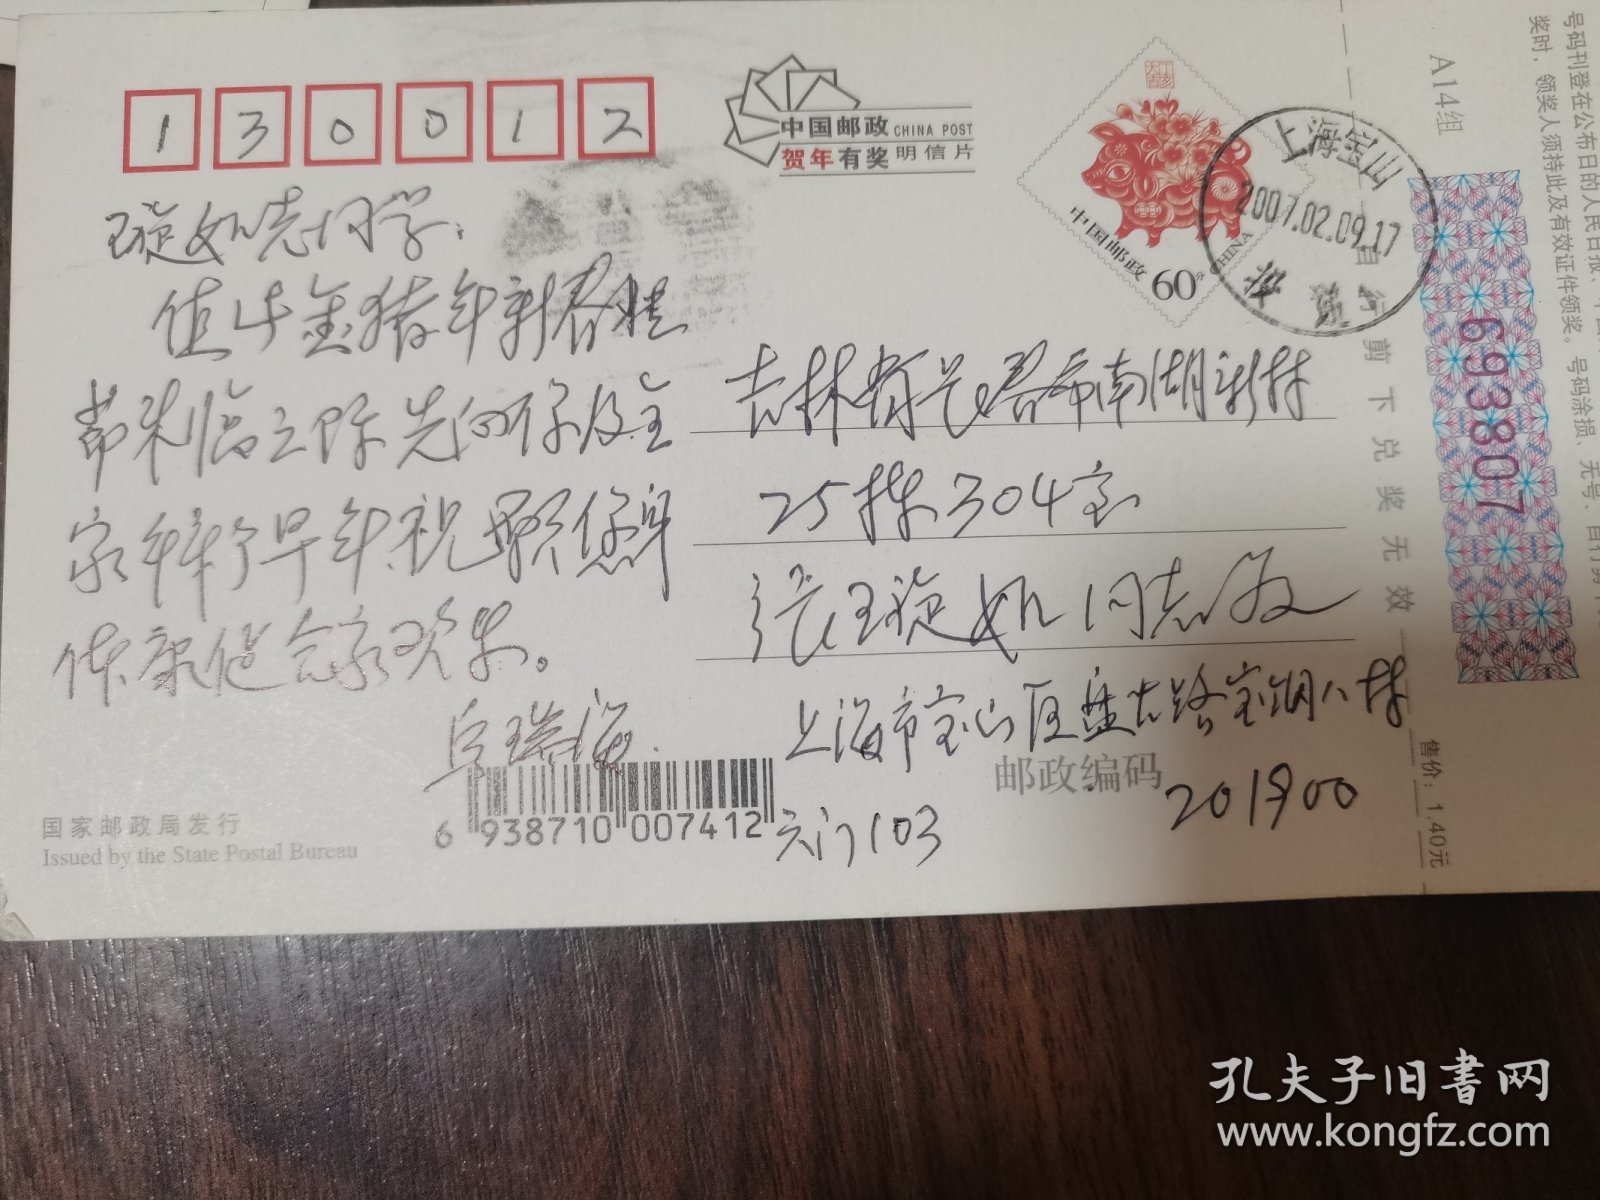 130012
中国邮政 CHINA POST
贺年有奖 明信片
中国邮政 60分 CHINA
上海宝山
2007.02.09.17
A14组
号码刊登在公布日的人民日报、
奖时,领奖人须持此及有效证件领奖。号码涂损、无号、自行剪
自行剪下兑奖无效
693807
售价:1.40元
璇如老同学:
值此金猪年新春佳
节来临之际先向你及全
家拜个早年.祝愿您身
体康健合家欢乐。
瑞海.
吉林省长春市南湖新村
25栋304室
张璇如同志收
上海市宝山区盘古路宝钢八村
邮政编码 201900
六门103
6 938710 007412
国家邮政局发行
Issued by the State Postal Bureau
孔夫子旧书网
www.kongfz.com